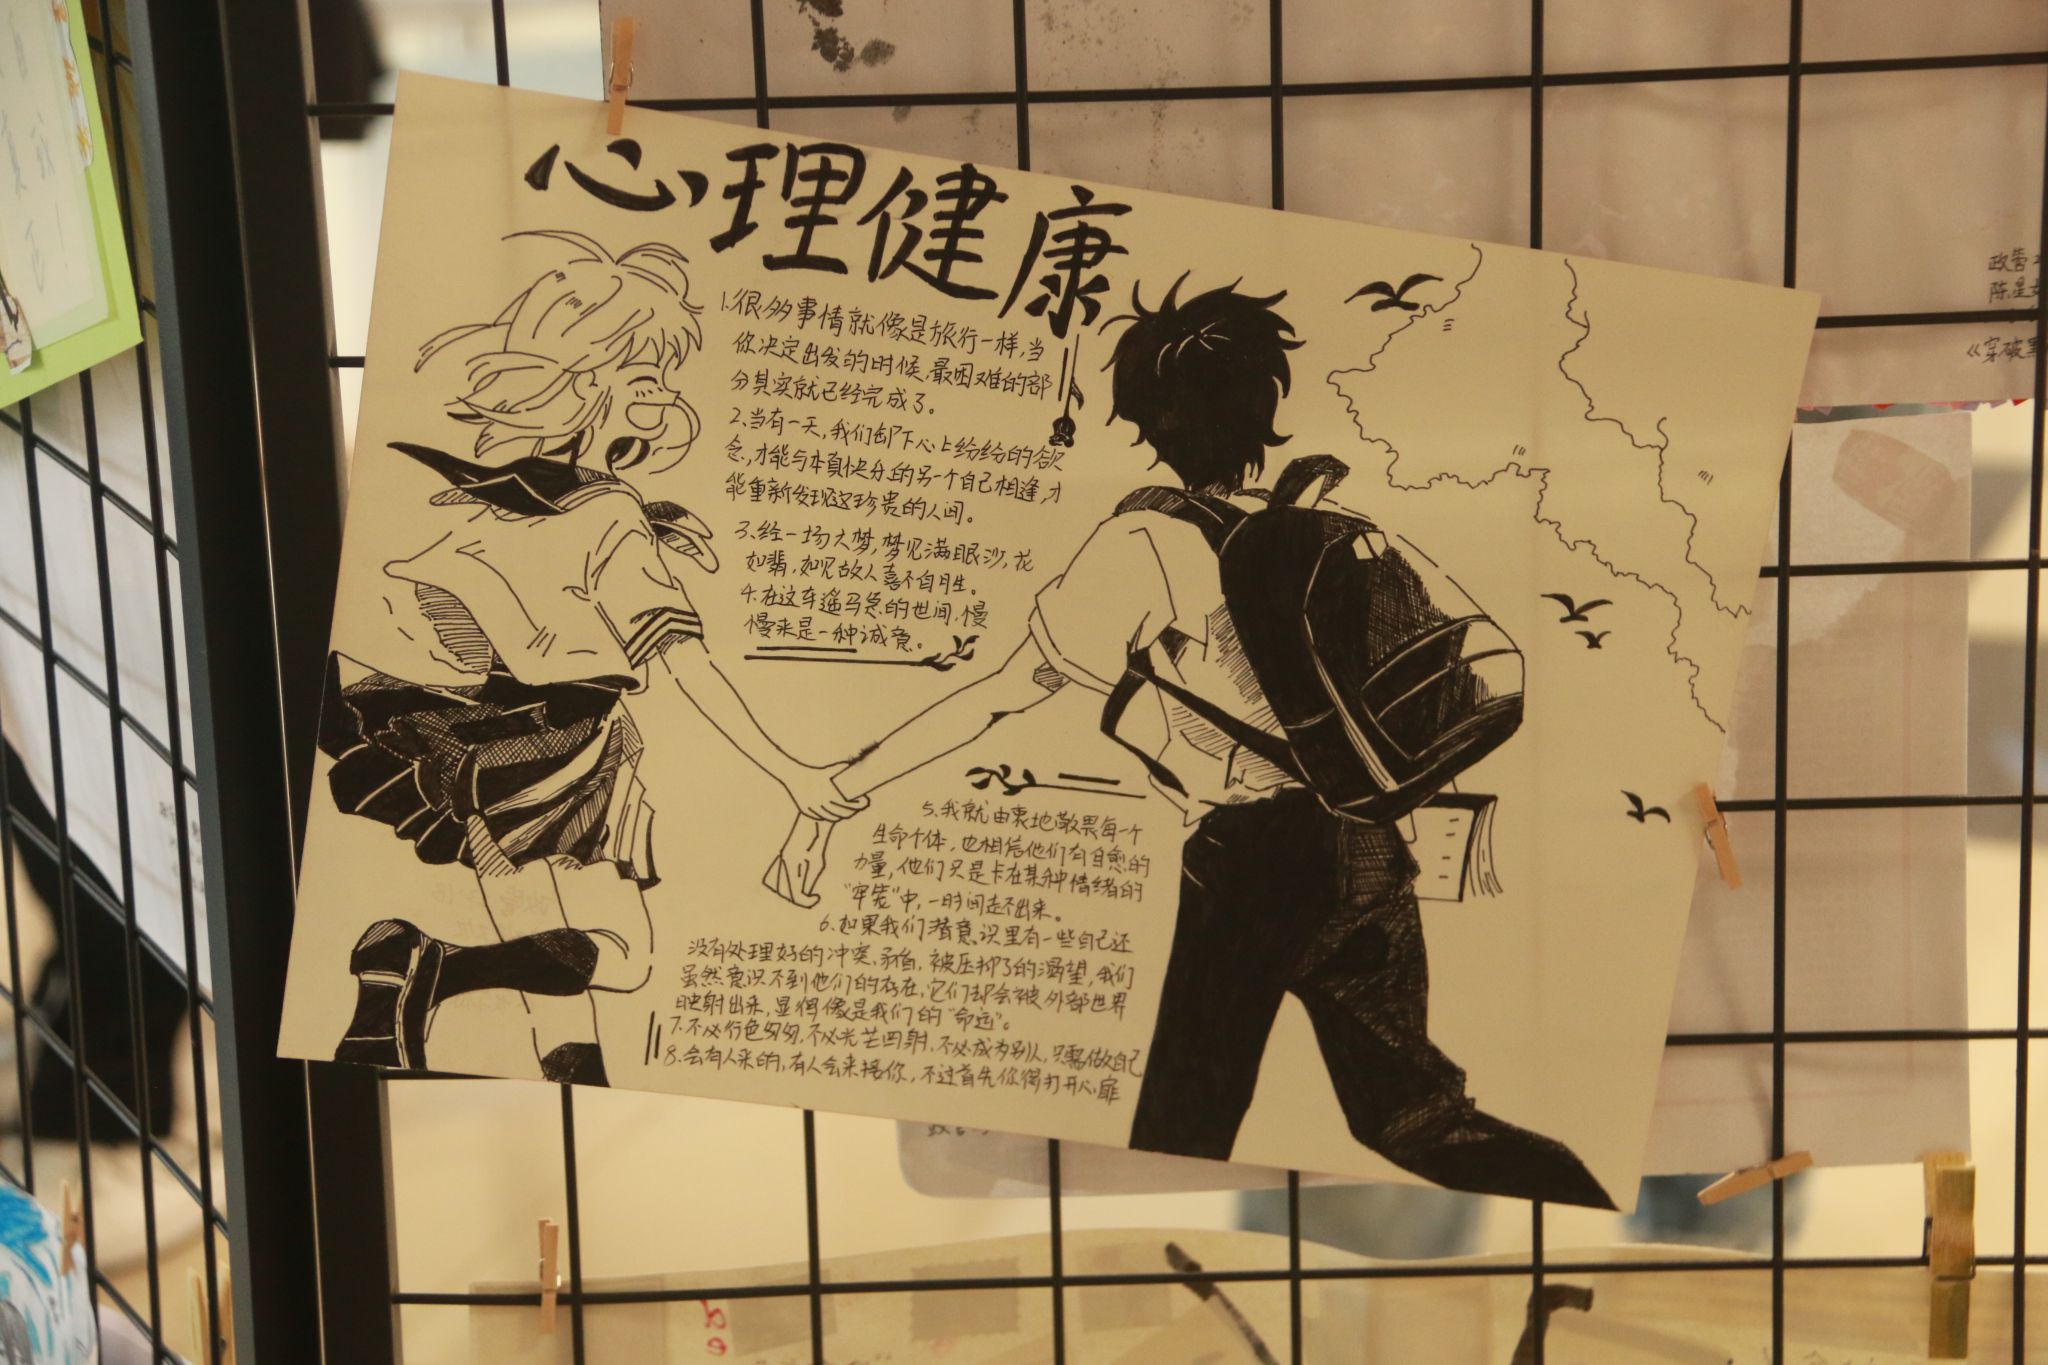 心理健康
1.很多事情就像是旅行一样,当
你决定出发的时候,最困难的部
分其实就已经完成了。
2.当有一天,我们卸下心上纷纷的欲
念,才能与本真快乐的另一个自己相逢,才
能重新发现这珍贵的人间。
3.经一场大梦,梦见满眼沙,花
如翡,如见故人喜不自胜。
4.在这车遥马急的世间,慢
慢来是一种诚意。
5.我就由衷地敬畏每一个
生命个体,也相信他们有自愈的
力量,他们只是卡在某种情绪的
"牢笼"中,一时间走不出来。
6.如果我们潜意识里有一些自己还
没有处理好的冲突、矛盾,被压抑了的渴望,我们
虽然意识不到他们的存在,它们却会被外部世界
映射出来,显得像是我们的"命运"。
7.不必行色匆匆,不必光芒四射,不必成为别人,只需做自己
8.会有人来的,有人会来接你,不过首先你得打开心扉
政营
陈星
《穿破